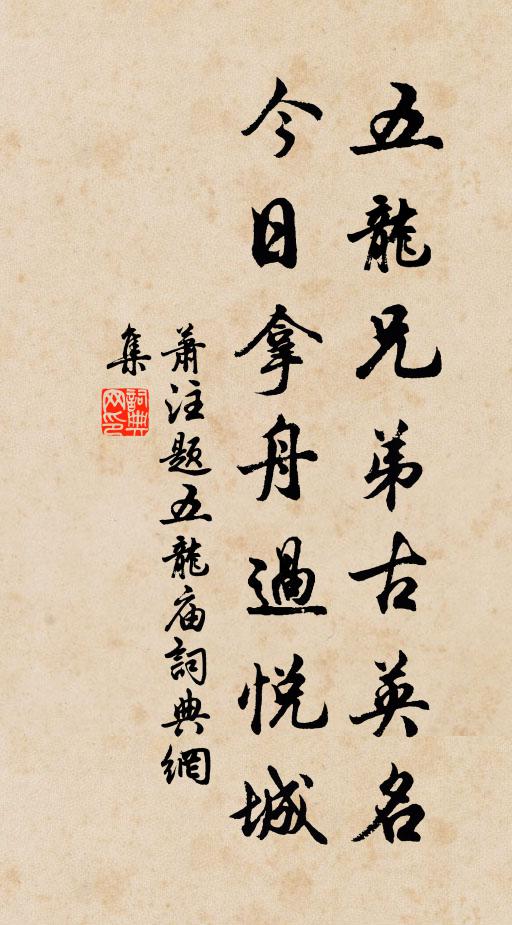 五龍兄弟古英名
今日拿舟過悅城
蕭注题五龍庙詞典網
集
詞典
网印